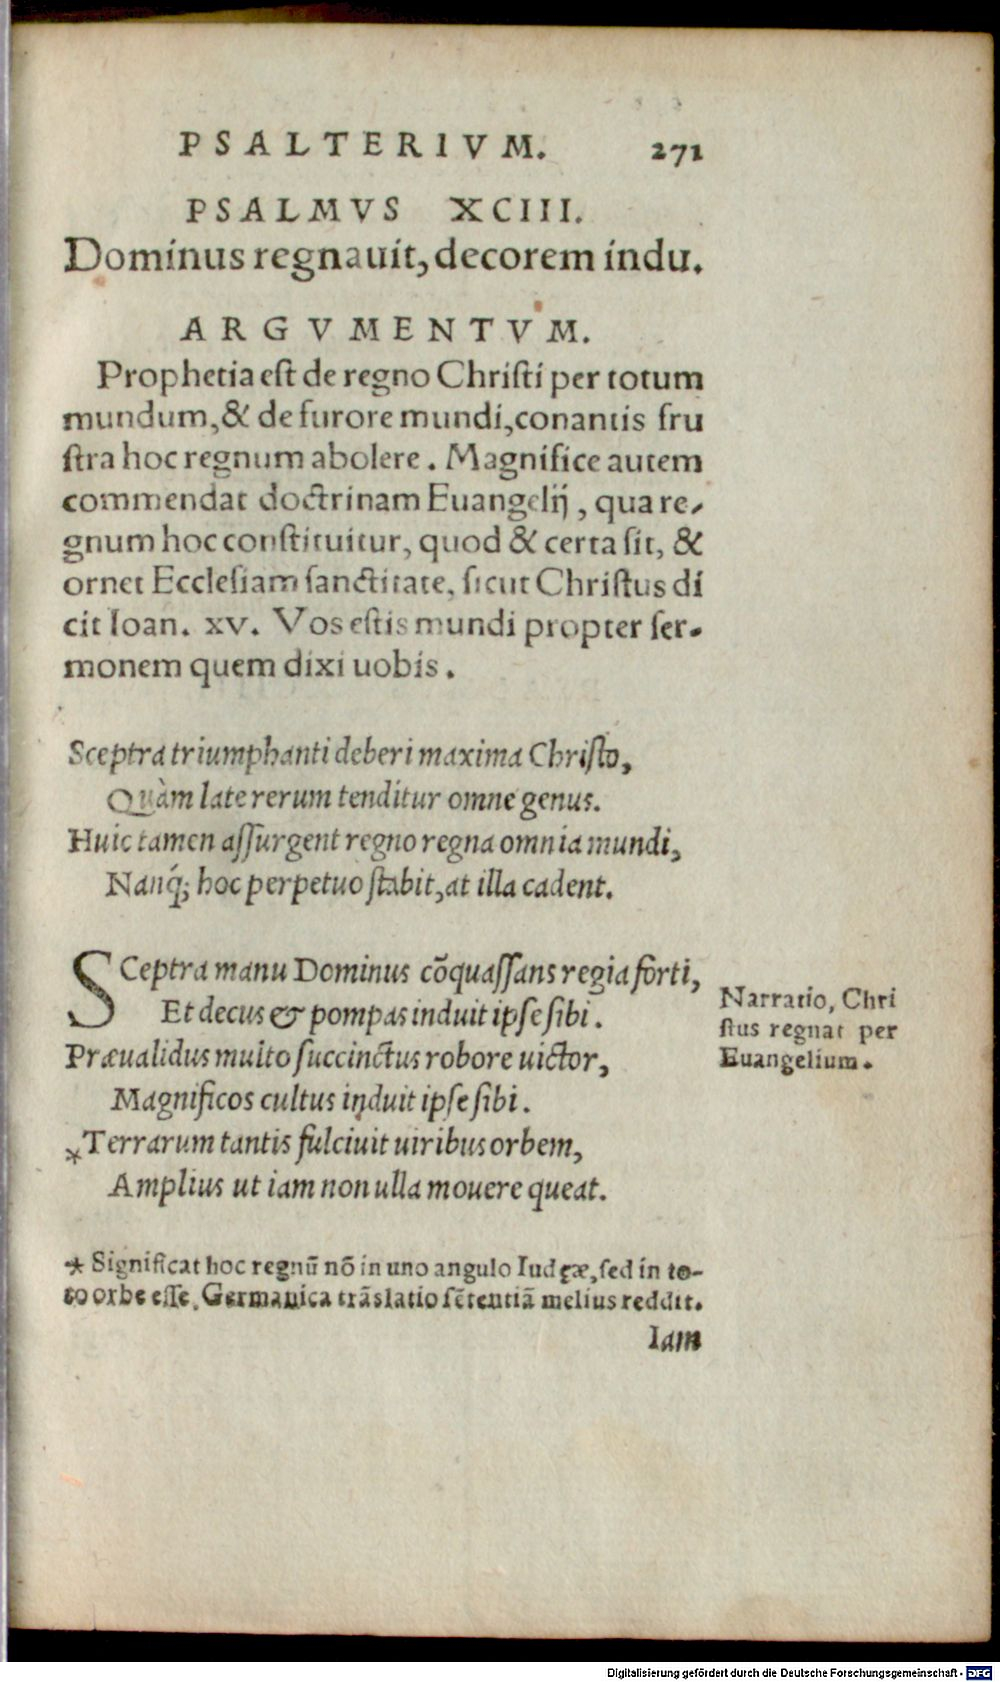 PSALTERIVM. 271
PSALMVS XCIII.
Dominus regnauit, decorem indu.
ARGVMENTVM.
Prophetia est de regno Christi per totum
mundum, & de furore mundi, conantis fru
stra hoc regnum abolere. Magnifice autem
commendat doctrinam Euangelij, qua re-
gnum hoc constituitur, quod & certa sit, &
ornet Ecclesiam sanctitate, sicut Christus di
cit Ioan. xv. Vos estis mundi propter ser-
monem quem dixi uobis.
Sceptra triumphanti deberi maxima Christo,
Quàm late rerum tenditur omne genus.
Huic tamen assurgent regno regna omnia mundi,
Nanq́; hoc perpetuo stabit, at illa cadent.
SCeptra manu Dominus cõquassans regia forti,
Et decus & pompas induit ipse sibi.
Præualidus multo succinctus robore uictor,
Magnificos cultus induit ipse sibi.
*Terrarum tantis fulciuit uiribus orbem,
Amplius ut iam non ulla mouere queat.
Narratio, Chri
stus regnat per
Euangelium.
* Significat hoc regnũ nõ in uno angulo Iudęæ, sed in to-
to orbe esse. Germanica trãslatio sẽtentiã melius reddit.
Iam
Digitalisierung gefördert durch die Deutsche Forschungsgemeinschaft - DFG